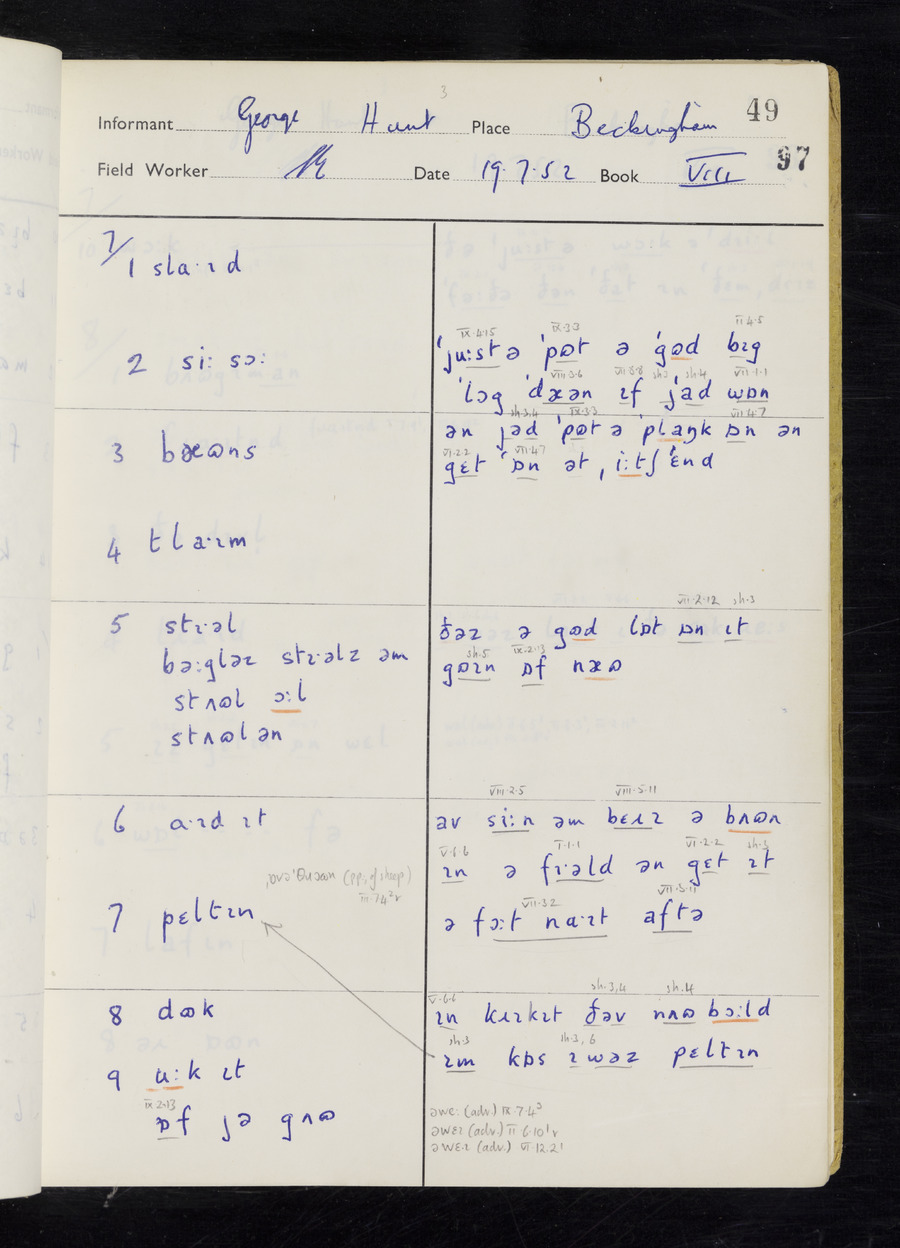 3
Informant George Hunt Place Beckingham 49
97
Field Worker Date 19.7.52 Book VIII
7/
1 slaˑɪd
2 siː sɔː
ˈjuːst ə ˈpɷt ə ˈgɷd bɪg
IX·4·15 IX·3·3 II 4·5
ˈlɔg ˈdæən ɪf ˈjad wɒn
VIII·3·6 VII·8·8 sh·3 sh·4 VII·1·1
3 bæɷns
ən jəd ˈpɷt ə ˈplaŋk ɒn ən
sh·3,4 IX·3·3 VII·4·7
gɛt ˈɒn ət ˌiːtʃ ˈɛnd
VI·2·2 VII·4·7
4 tlaˑɪm
5 stɪˑəl
bəːgləz stɪˑəlz əm
stʌɷl ɔːl
stʌɷl ən
ðəz ə gɷd lɒt ɒn ɪt
VII·2·12 sh·3
gɷɪn ɒf næɷ
sh·5 IX·2·13
6 aˑɪd ɪt
av siːn əm bɛɪɪ ə bɷən
VIII·2·5 VIII·5·11
ɪn ə fɪˑəld ən gɛt ɪt
V·6·6 I·1·1 VI·2·2 sh·3
ə fɔːt naˑɪt aftə
VII·3·2 VII·3·11
7 pɛltɪn
ˌɒvəˈθɹæən (pp. of sheep)
III·7·4²v
8 dɷk
ɪn kɹɪkɪt ðəv nʌɷ bɔːld
V·6·6 sh·3,4 sh·4
9 uːk ɪt
ɪm kɒs ɪ wəz pɛltɪn
sh·3 sh·3,6
ɒf jə gʌɷ
IX 2·13
əweː (adv.) IX·7·4³
əwɛɪ (adv.) II·6·10¹v
əwɛɪ (adv.) VI·12.2¹